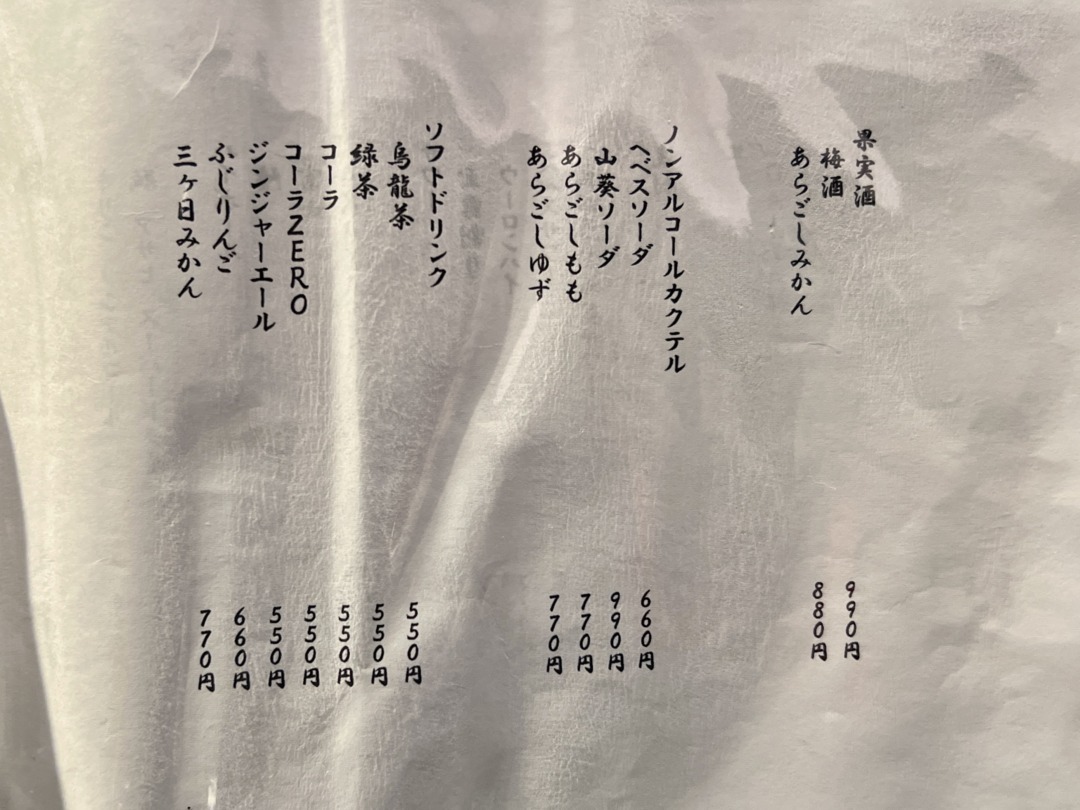 果実酒
梅酒 990円
あらごしみかん 880円
ノンアルコールカクテル
ヘベスソーダ 660円
山葵ソーダ 990円
あらごしもも 770円
あらごしゆず 770円
ソフトドリンク
烏龍茶 550円
緑茶 550円
コーラ 550円
コーラZERO 550円
ジンジャーエール 550円
ふじりんご 660円
三ヶ日みかん 770円